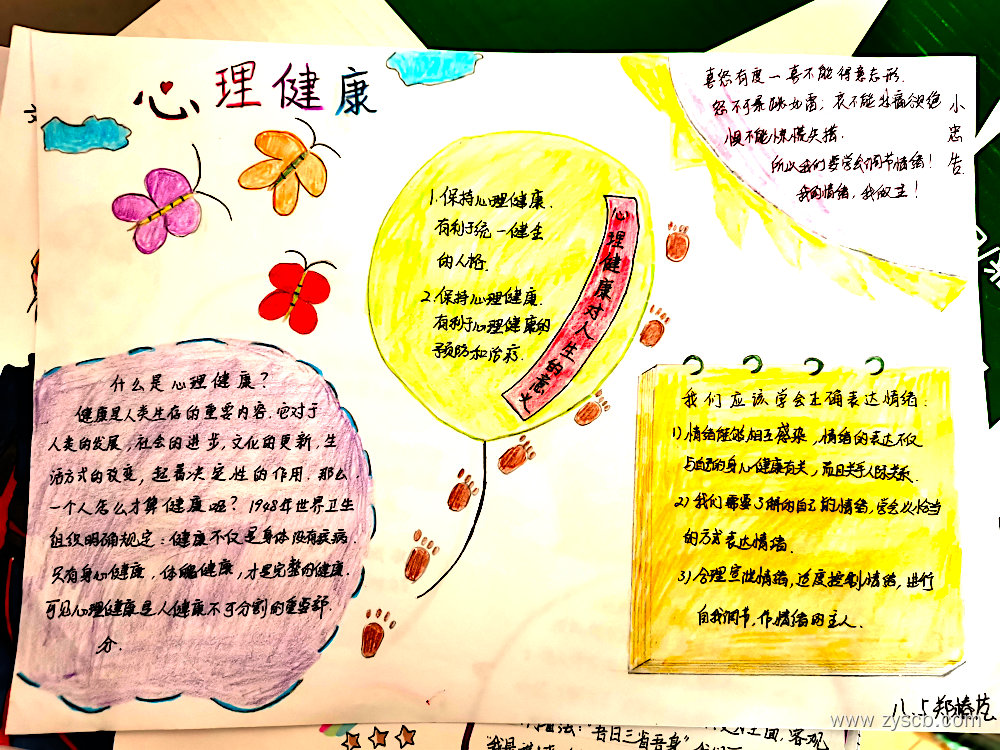 心理健康
喜怒有度一喜不能得意忘形.
怒不可暴跳如雷；哀不能悲痛欲绝
惧不能惊慌失措.
所以我们要学会调节情绪！
我的情绪，我做主！
小忠告
1.保持心理健康.
有利于统一健全
的人格.
2.保持心理健康.
有利于心理健康的
预防和治疗.
心理健康对人生的意义
什么是心理健康？
健康是人类生存的重要内容.它对于
人类的发展,社会的进步,文化的更新,生
活方式的改变，起着决定性的作用.那么
一个人怎么才算健康呢？1948年世界卫生
组织明确规定：健康不仅是身体没有疾病.
只有身心健康，体魄健康，才是完整的健康.
可见心理健康是人健康不可分割的重要部
分.
我们应该学会正确表达情绪.
1)情绪能够相互感染，情绪的表达不仅
与自己的身心健康有关，而且关乎人际关系.
2)我们需要了解自己的情绪,学会以恰当
的方式表达情绪.
3)合理宣泄情绪,适度控制情绪，进行
自我调节,作情绪的主人.
八.5郑椿芪
www.zyscb.com
"吾日三省吾身"